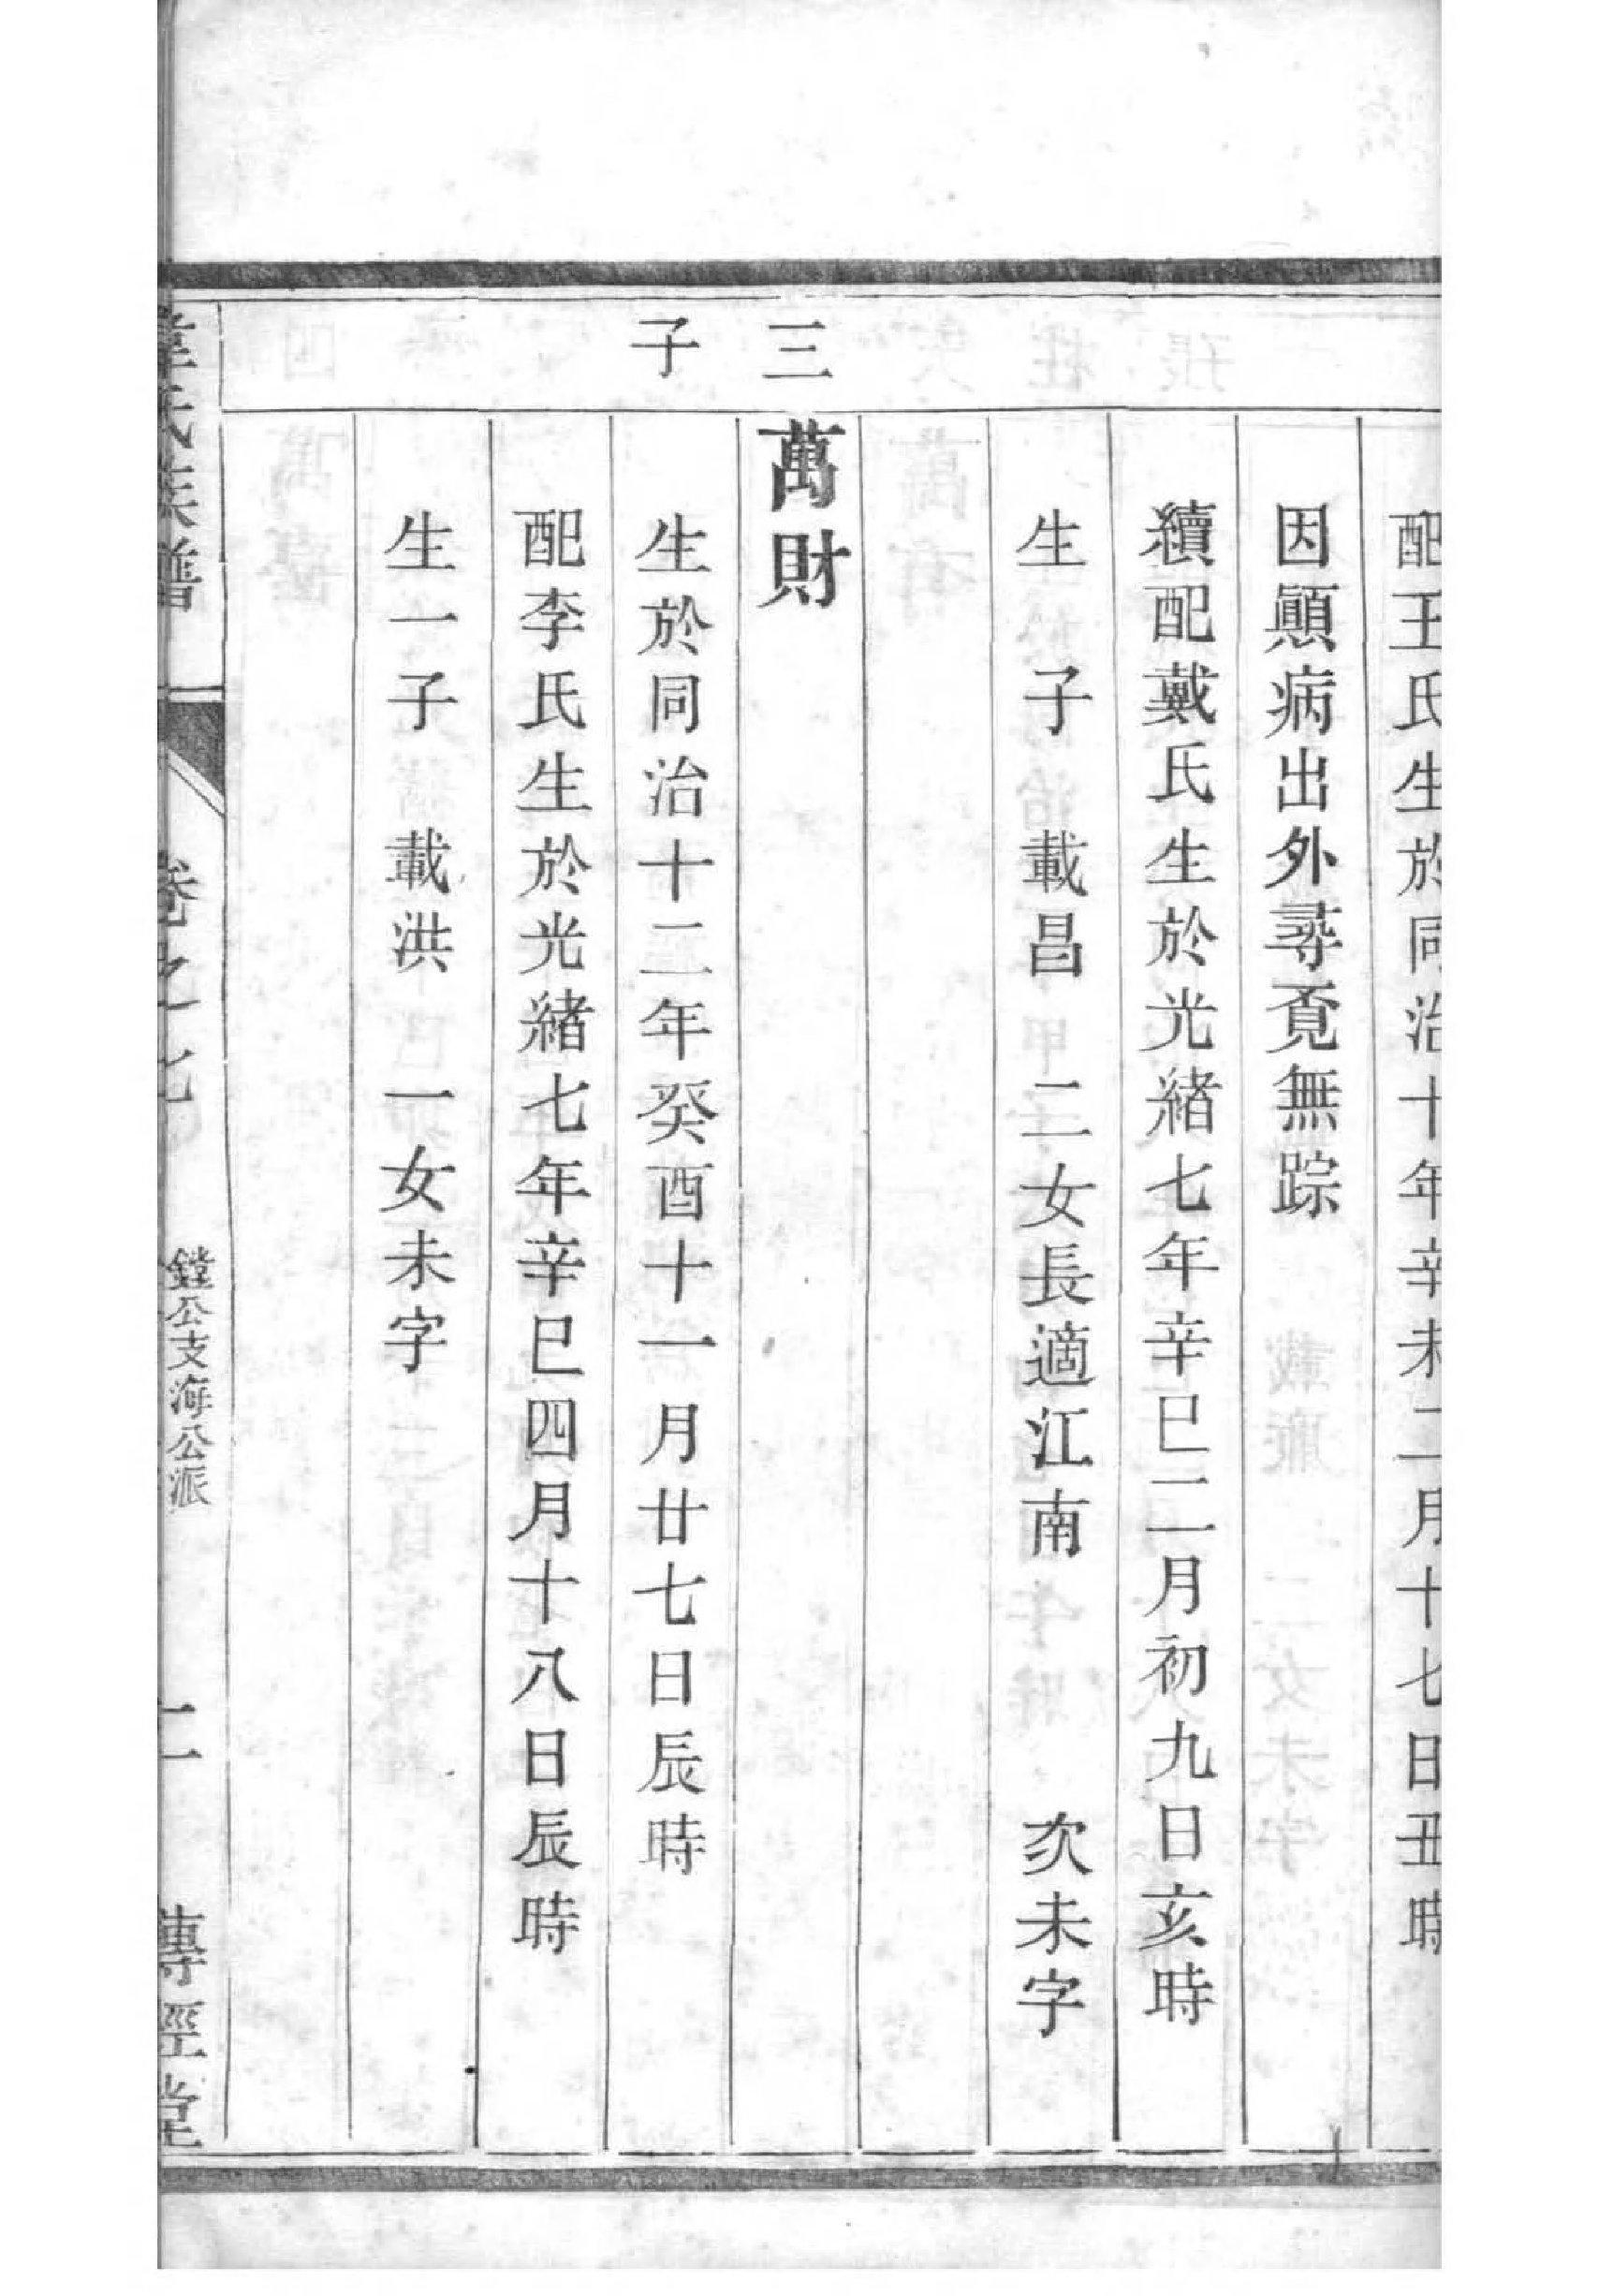 配王氏生於同治十年辛未二月十七日丑時
因顚病出外尋覔無踪
續配戴氏生於光緒七年辛巳二月初九日亥時
生 子 載昌 二女長適江南 次未字
三子
萬財
生於同治十二年癸酉十一月廿七日辰時
配李氏生於光緒七年辛巳四月十八日辰時
生一子 載洪 一女未字
氏族譜 卷之七 鏜公支海公派 二 傳經堂